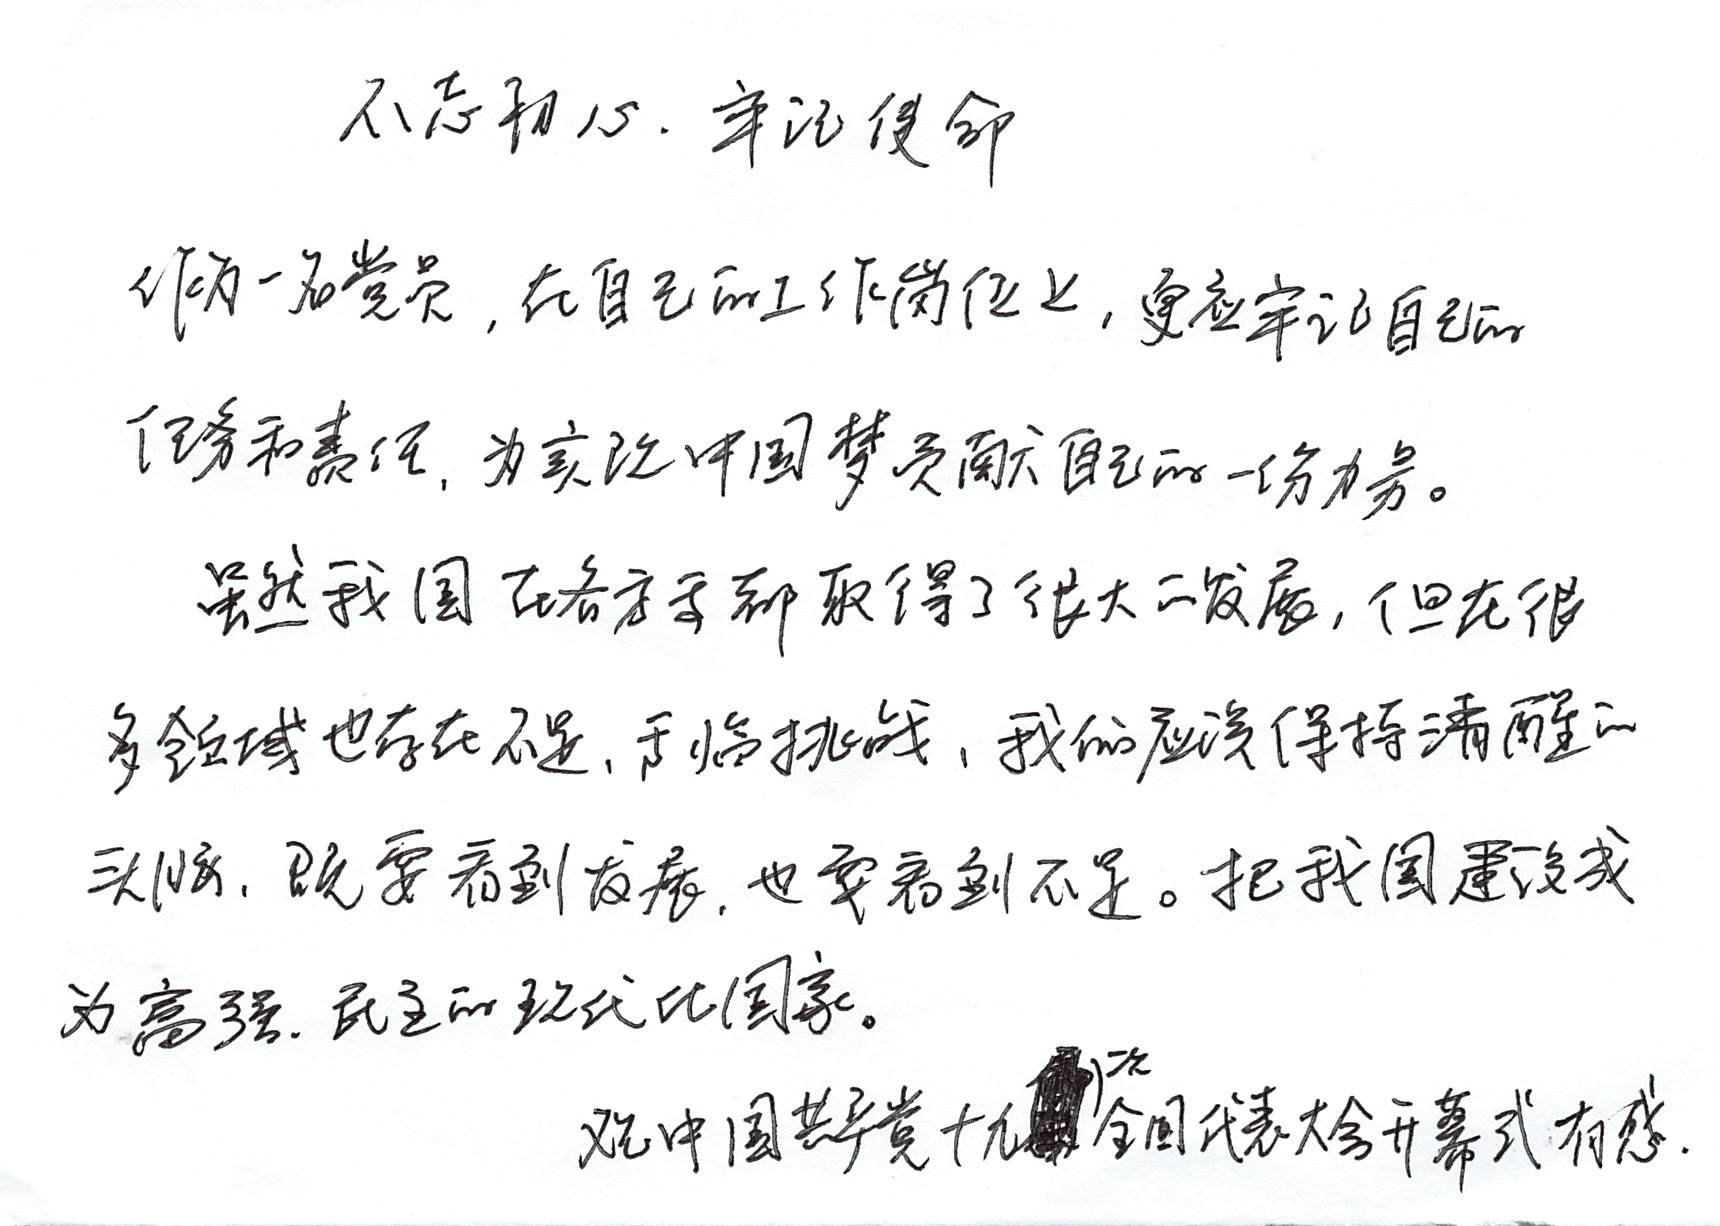 不忘初心.牢记使命
作为一名党员,在自己的工作岗位上,更应牢记自己的
任务和责任,为实现中国梦贡献自己的一份力量。
虽然我国在各方面都取得了很大的发展,但在很
多领域也存在不足、面临挑战,我们应该保持清醒的
头脑,既要看到发展,也要看到不足。把我国建设成
为富强、民主的现代化国家。
观中国共产党十九次全国代表大会开幕式有感.